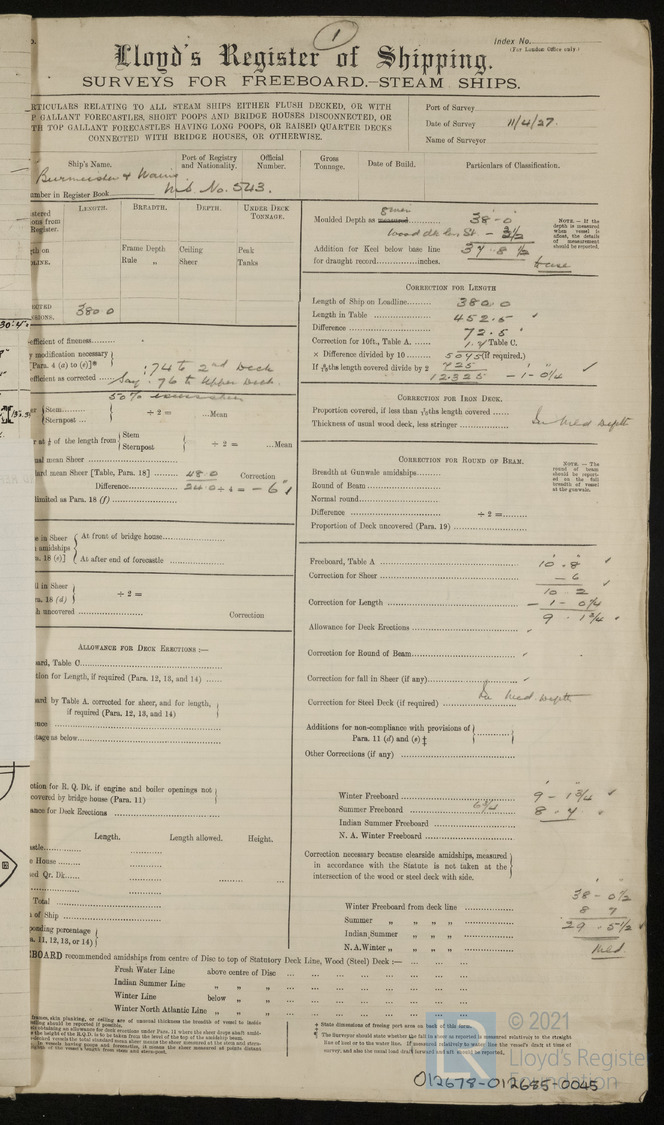 1
Index No.
(For London Office only.)
Lloyd's Register of Shipping.
SURVEYS FOR FREEBOARD.—STEAM SHIPS.
RTICULARS RELATING TO ALL STEAM SHIPS EITHER FLUSH DECKED, OR WITH
P GALLANT FORECASTLES, SHORT POOPS AND BRIDGE HOUSES DISCONNECTED, OR
TH TOP GALLANT FORECASTLES HAVING LONG POOPS, OR RAISED QUARTER DECKS
CONNECTED WITH BRIDGE HOUSES, OR OTHERWISE.
Port of Survey
Date of Survey 11/4/27.
Name of Surveyor
Ship's Name.
Port of Registry and Nationality.
Official Number.
Gross Tonnage.
Date of Build.
Particulars of Classification.
Burmeister & Wains
No. 543.
umber in Register Book
LENGTH. BREADTH. DEPTH. UNDER DECK TONNAGE.
Frame Depth Ceiling Peak
Rule „ Sheer Tanks
380 0
efficient of fineness
y modification necessary
[Para. 4 (a) to (e)]*
.74 to 2nd Deck
efficient as corrected Say .76 to Upper Deck.
Stem
Sternpost
÷ 2 = ...Mean
r at ⅛ of the length from Stem
Sternpost
÷ 2 = ...Mean
al mean Sheer
ard mean Sheer [Table, Para. 18] 48.0 Correction
Difference 24.0 ÷ 4 = - 6"
limited as Para. 18 (f)
e in Sheer At front of bridge house
amidships
a. 18 (e)] At after end of forecastle
l in Sheer
ra. 18 (d)
÷ 2 =
h uncovered Correction
ALLOWANCE FOR DECK ERECTIONS :—
ard, Table C
tion for Length, if required (Para. 12, 13, and 14)
ard by Table A. corrected for sheer, and for length,
if required (Para. 12, 13, and 14)
ence
tage as below
ction for R. Q. Dk. if engine and boiler openings not
covered by bridge house (Para. 11)
ance for Deck Erections
Length. Length allowed. Height.
stle
e House
ed Qr. Dk.
Total
of Ship
ponding percentage
a. 11, 12, 13, or 14)
Moulded Depth as measured 38 - 0
- 3½
Addition for Keel below base line 37 - 8 ½
for draught record inches.
NOTE.—If the depth is measured when vessel is afloat, the details of measurement should be reported.
CORRECTION FOR LENGTH
Length of Ship on Loadline 380.0
Length in Table 452.5
Difference 72.5
Correction for 10ft., Table A. 1.7 Table C.
× Difference divided by 10 (if required.)
12.325 - 1 - 0¼
CORRECTION FOR IRON DECK.
Proportion covered, if less than 7/10ths length covered
Thickness of usual wood deck, less stringer In Mld Depth
CORRECTION FOR ROUND OF BEAM.
Breadth at Gunwale amidships
Round of Beam
Normal round
Difference ÷ 2 =
Proportion of Deck uncovered (Para. 19)
NOTE.—The round of beam should be reported on the full breadth of vessel at the gunwale.
Freeboard, Table A 10 . 8
Correction for Sheer - 6
10 . 2
Correction for Length - 1 - 0¼
9 . 1¾
Allowance for Deck Erections
Correction for Round of Beam
Correction for fall in Sheer (if any)
Correction for Steel Deck (if required) In Mld Depth
Additions for non-compliance with provisions of
Para. 11 (d) and (e) ‡
Other Corrections (if any)
Winter Freeboard 9 - 1¾
Summer Freeboard 6¾ 8 . 7
Indian Summer Freeboard
N. A. Winter Freeboard
Correction necessary because clearside amidships, measured
in accordance with the Statute is not taken at the
intersection of the wood or steel deck with side.
38 - 0½
Winter Freeboard from deck line 8 7
Summer „ „ „ „ 29 . 5½
Indian Summer „ „ „ „
N. A. Winter „ „ „ „ Mld.
BOARD recommended amidships from centre of Disc to top of Statutory Deck Line, Wood (Steel) Deck :—
Fresh Water Line above centre of Disc
Indian Summer Line „ „ „
Winter Line below „ „
Winter North Atlantic Line „ „ „
‡ State dimensions of freeing port area on back of this form.
¶ The Surveyor should state whether the fall in sheer is reported measured relatively to the straight
line of keel or to the water line. If measured relatively to water line the vessel's draft at time of
survey, and also the usual load draft forward and aft should be reported.
© 2021
Lloyd's Registe
Foundation
012678-012685-0045